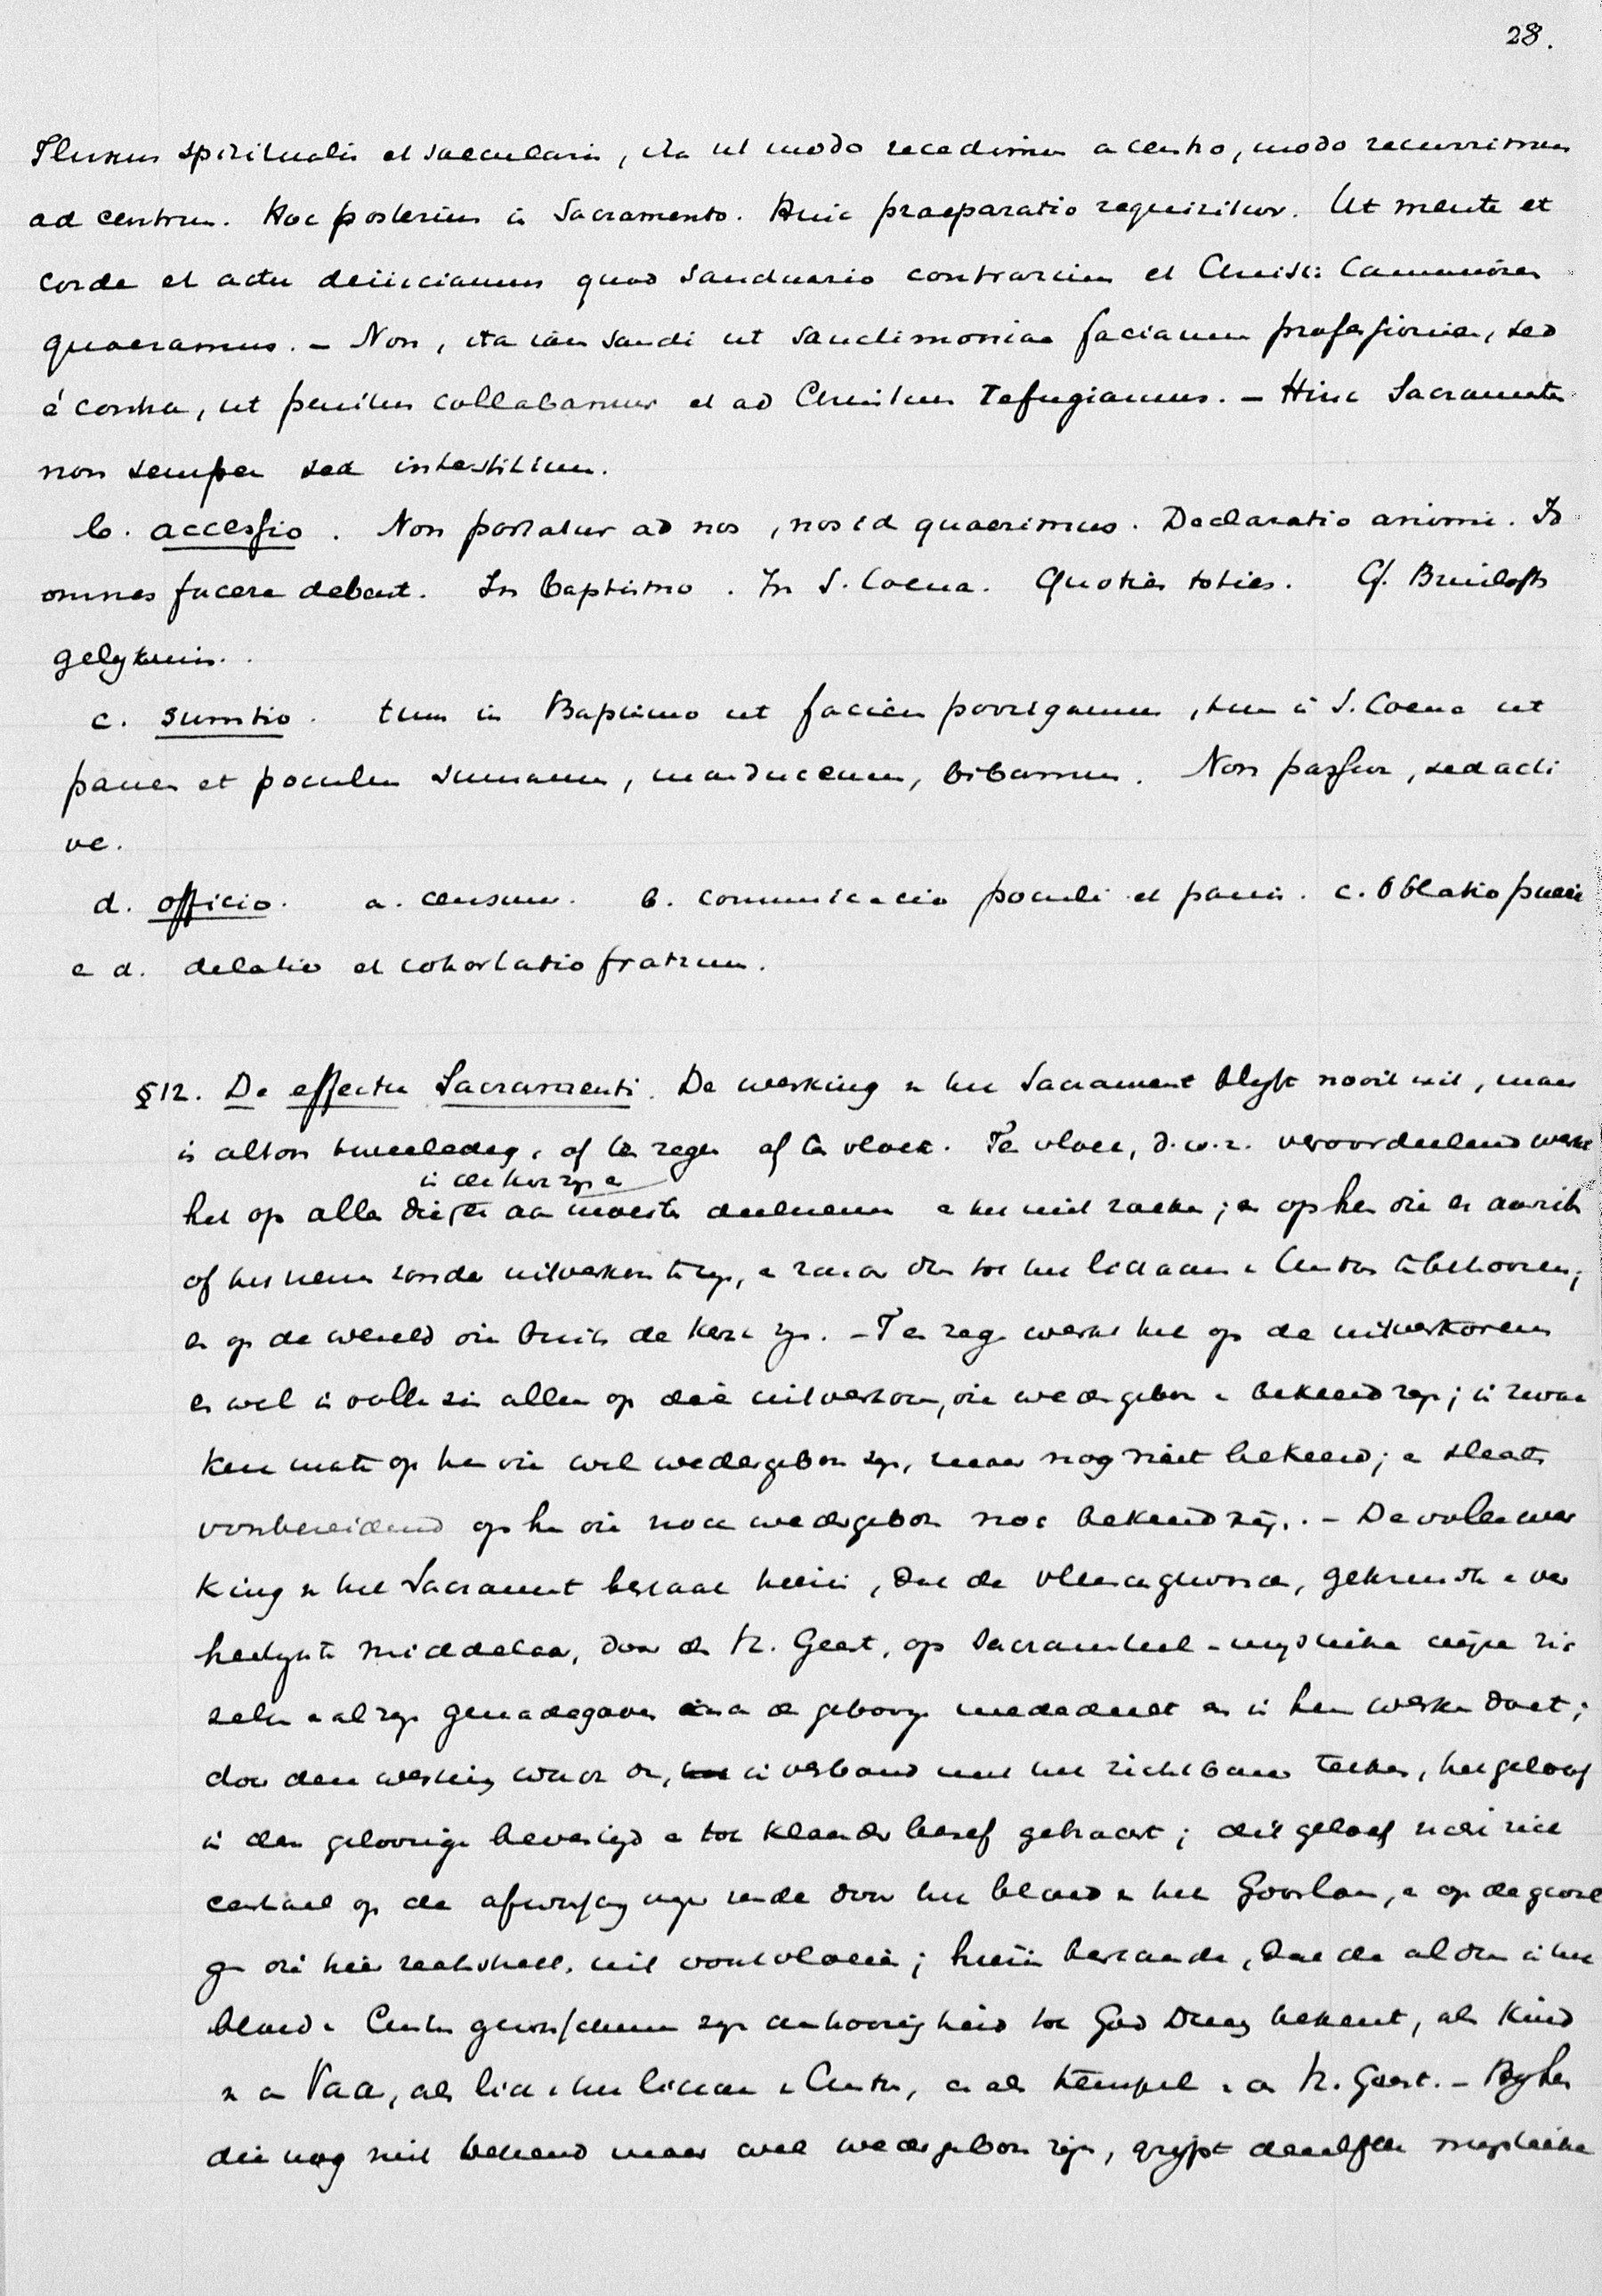 28.
Fluxus spiritualis et saecularis, ita ut modo recedimus a centro, modo recurrimus
ad centrum. Hoc posterius in Sacramento. Huic praeparatio requiritur. Ut mente et
corde et actu deiiciamus quod sanctuario contrarium et Christi Communionem
quaeramus. – Non, ita iam sancti ut sanctimoniae faciamus professionem, sed
é contra, ut penitus collabamur et ad Christum refugiamus. – Hinc Sacramenta
non semper sed interstitium.
b. accessio. Non portatur ad nos, nos id quaerimus. Declaratio animi. Id
omnes facere debent. In baptismo. In S. Coena. Quoties toties. Cf. Bruilofts
gelykenis.
c. sumtio. tum in Baptismo ut faciem porrigamus, tum in S. Coena ut
panem et poculum sumamus, manducemus, bibamus. Non passive, sed acti
ve.
d. officio. a. censura. b. communicatio poculi et panis. c. Oblatio pueri
e d. delatio et cohortatio fratrum.
§12. De effectu Sacramenti. De werking v. het Sacrament blyft nooit uit, maar
is altoos tweeledig, of ten zegen of ten vloek. Ten vloek, d.w.z. veroordeelend werkt
in de kerk zyn
het op alle die er aan moesten deelnemen en het niet zochten; en op hen die er aanzitten
of het nemen zonder uitverkoren te zyn, en zonder dus tot het lichaam v. Christus te behooren;
en op de wereld die buiten de Kerk zyn. – Ten zegen werkt het op de uitverkorenen
en wel in volle zin alleen op die uitverkoren, die wedergeboren en bekeerd zyn; in zwak
kere mate op hen die wel wedergeboren zyn, maar nog niet bekeerd; en slechts
voorbereidend op hen die noch wedergeboren noch bekeerd zijn. – De volle wer
king v. het Sacrament bestaat hierin, dat de vleeschgeworden, gekruiste en ver
heerlykte Middelaar, door den H. Geest, op Sacramenteel-mystieke wijze zich
zelven en al zyn genadegaven aan de geloovigen mededeelt en in hen werken doet;
door deze werking wordt dan, in verband met het zichtbare teeken, het geloof
in den geloovige bevestigd en tot klaarder besef gebracht; dit geloof richt zich
centraal op de afwassching myner zonde door het bloed v. het Godslam, en op de gevol
gen die hier rechtstreeks uit voortvloeien; hierin bestaande, dat de aldus in het
bloed v. Christus gewasschene zyn aanhoorigheid tot God Drieëenig bekent, als Kind
v. den Vader, als lid v. het lichaam v. Christus, en als tempel v. den H. Geest. – By hen
die nog niet bekeerd maar wel wedergeboren zijn, grypt dezelfde mystieke